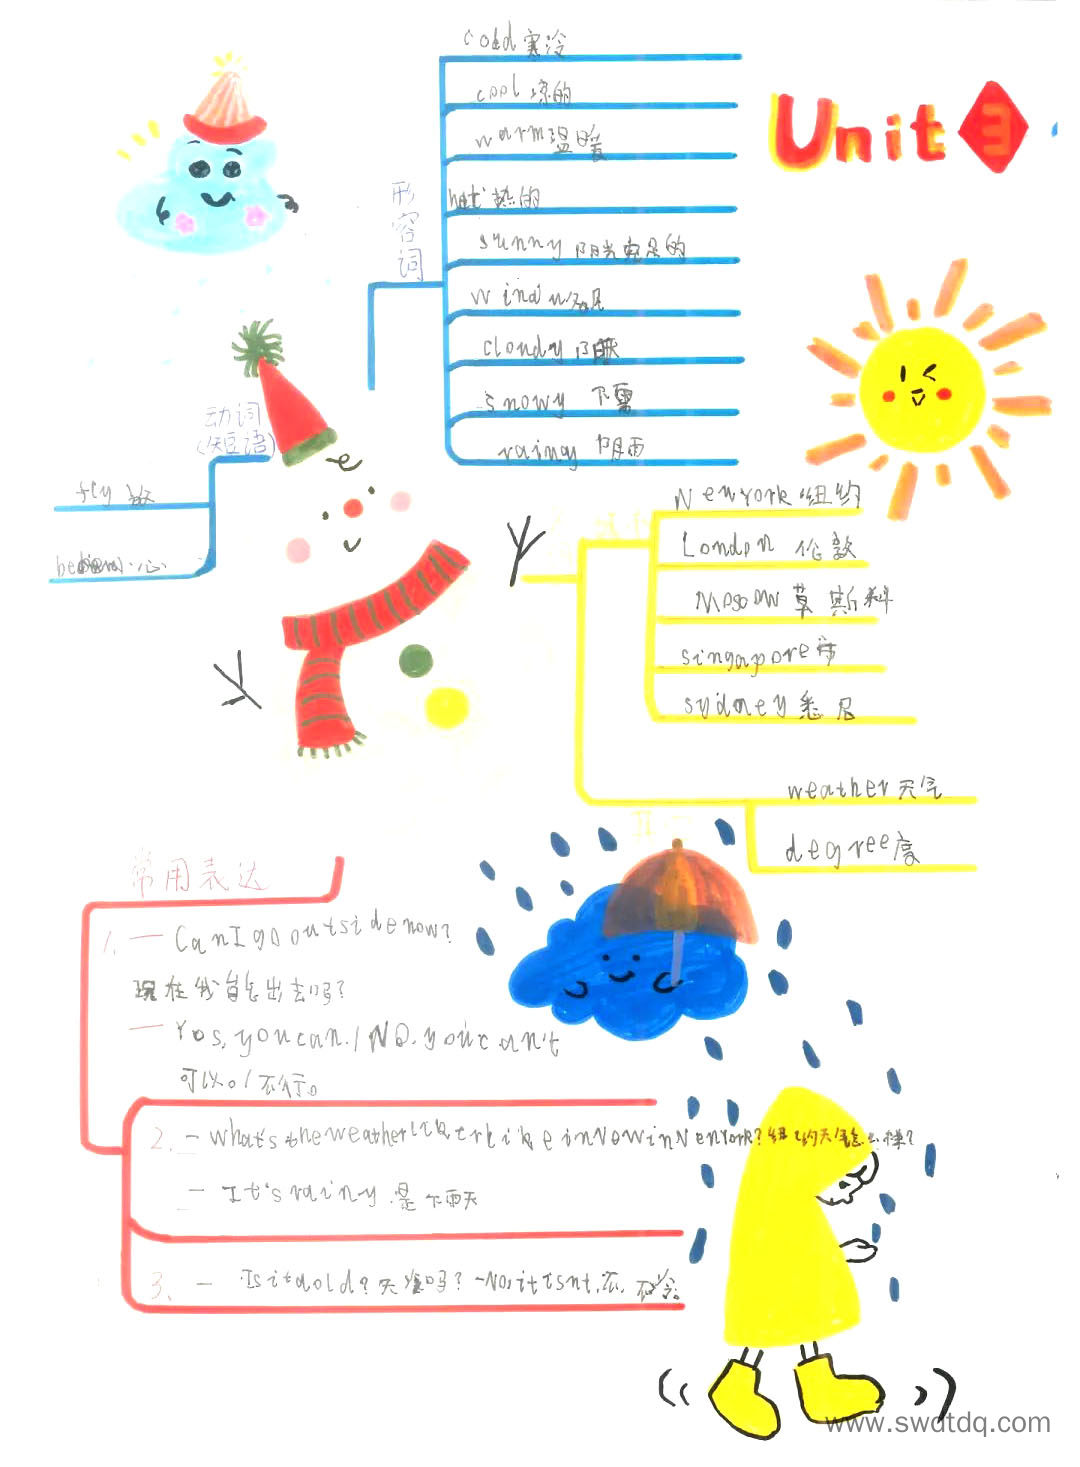 Unit 3
形容词
cold 寒冷
cool 凉的
warm 温暖
hot 热的
sunny 阳光充足的
windy
cloudy 阴
snowy 下雪
rainy 阴雨
动词
(短语)
fly 放
be
心
New York 纽约
London 伦敦
Moscow 草斯科
singapore
sydney 悉尼
weather 天气
degree 度
常用表达
1. — Can I go outside now?
现在我能出去吗?
— Yes, you can. / NO. you can't
可以。/ 不行。
2. — What's the weather like in New York? 纽约天气怎么样?
— It's rainy. 是下雨天
3. — Is it cold? 天冷吗? — No, it isn't. 不, 不冷。
www.swdtdq.com